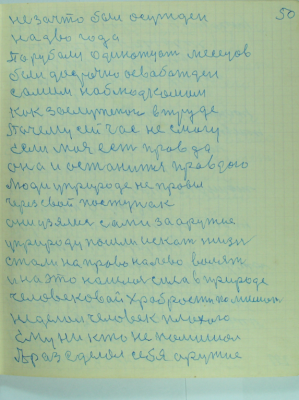 50
незачто был осужден
на два года
Порубали одинатцат месецов
был досрочно освабажден
самим наблюдкомам
как заслуженой в труде
Почему сичас не смогу
Если моя ест правда
она и останится правдою
люди уприроде не правы
чрез свой поступак
они узялис сами за аружие
уприроду пошли искат жизн
стали на право налево валят
и на это нашлас сила в природе
человековай храбрости
не делал человек плахого
Ему ни кто не помишал
Пораз сделал себя аружие